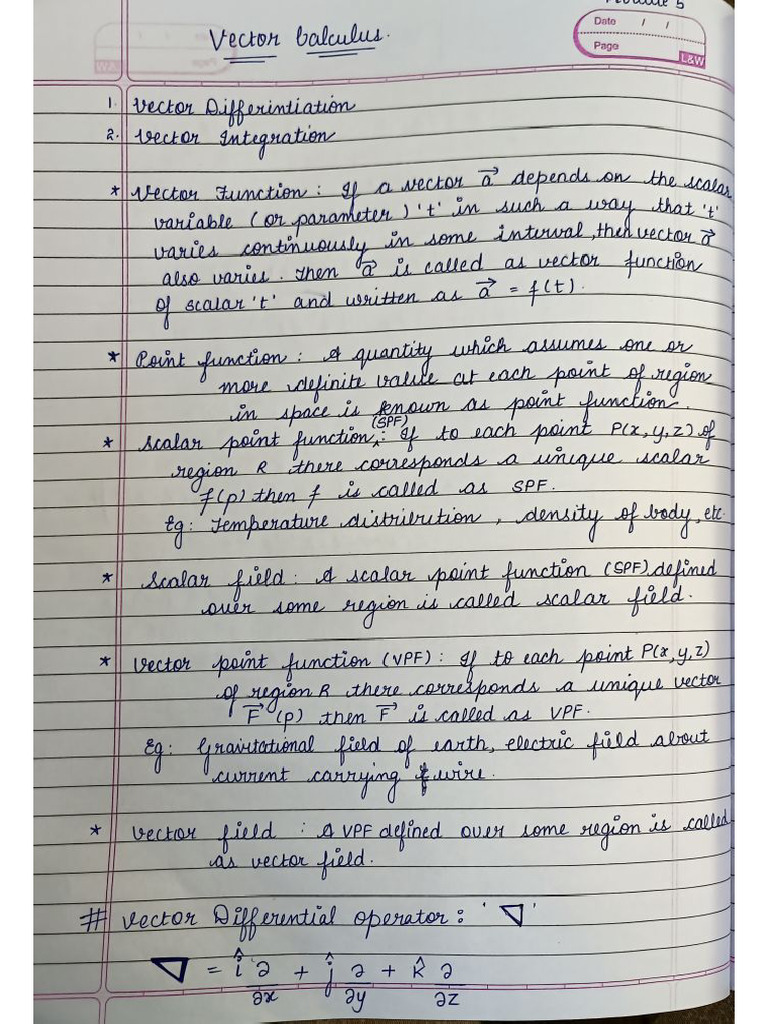 Module 5
Date / /
Page
L&W
Vector Calculus.
1. Vector Differintiation
2. Vector Integration
* Vector Function : If a vector a⃗ depends on the scalar
variable (or parameter) 't' in such a way that 't'
varies continuously in some interval, then vector a⃗
also varies. Then a⃗ is called as vector function
of scalar 't' and written as a⃗ = f(t).
* Point function : A quantity which assumes one or
more definite value at each point of region
in space is known as point function.
* Scalar point function (SPF) : If to each point P(x,y,z) of
region R there corresponds a unique scalar
f(p) then f is called as SPF.
Eg: Temperature distribution, density of body, etc.
* Scalar field : A scalar point function (SPF) defined
over some region is called scalar field.
* Vector point function (VPF) : If to each point P(x,y,z)
of region R there corresponds a unique vector
F⃗(p) then F⃗ is called as VPF.
Eg: Gravitational field of earth, electric field about
current carrying wire.
* Vector field : A VPF defined over some region is called
as vector field.
# Vector Differential operator : '∇'
∇ = î ∂/∂x + ĵ ∂/∂y + k̂ ∂/∂z